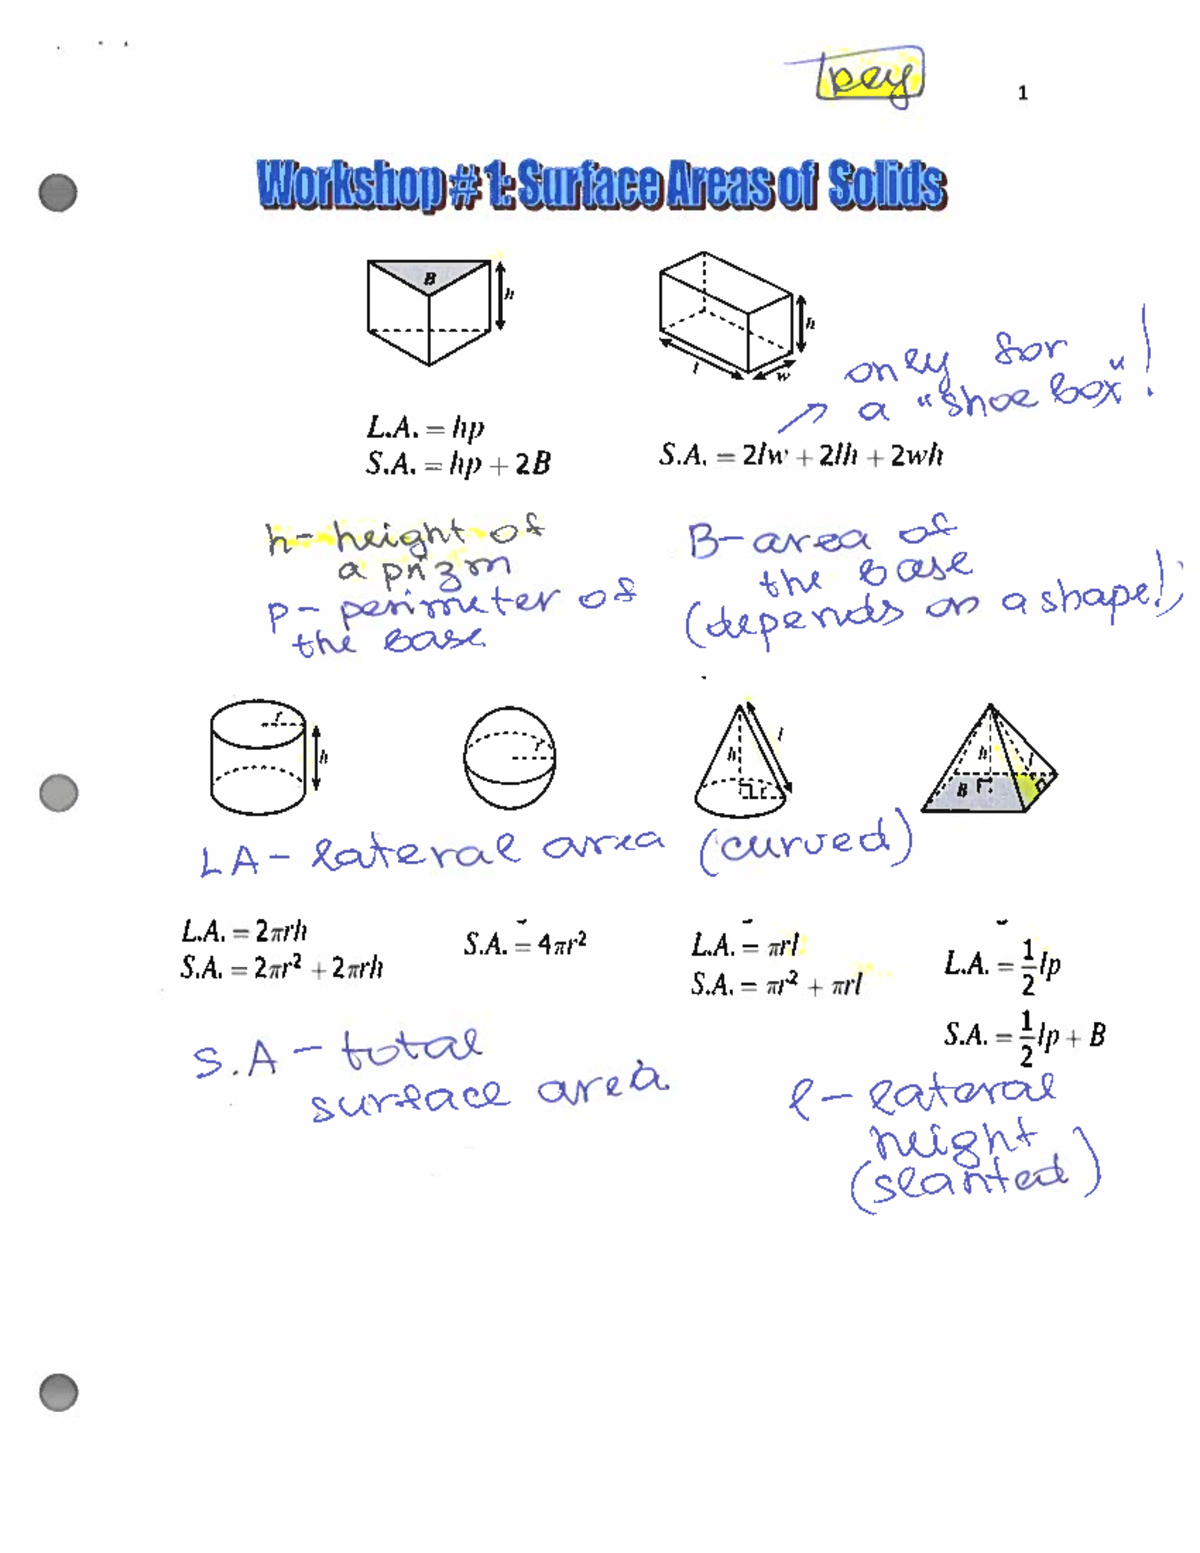 key
1
Workshop # 1: Surface Areas of Solids
B
h
h
l
w
only for
a "shoe box"!
L.A. = hp
S.A. = hp + 2B
S.A. = 2lw + 2lh + 2wh
h- height of
a prizm
p- perimeter of
the base
B- area of
the base
(depends on a shape!)
r
h
r
h
l
r
h
l
B
LA - lateral area (curved)
L.A. = 2πrh
S.A. = 2πr² + 2πrh
S.A. = 4πr²
L.A. = πrl
S.A. = πr² + πrl
L.A. = 1/2 lp
S.A. = 1/2 lp + B
S.A - total
surface area
l - lateral
height
(slanted)